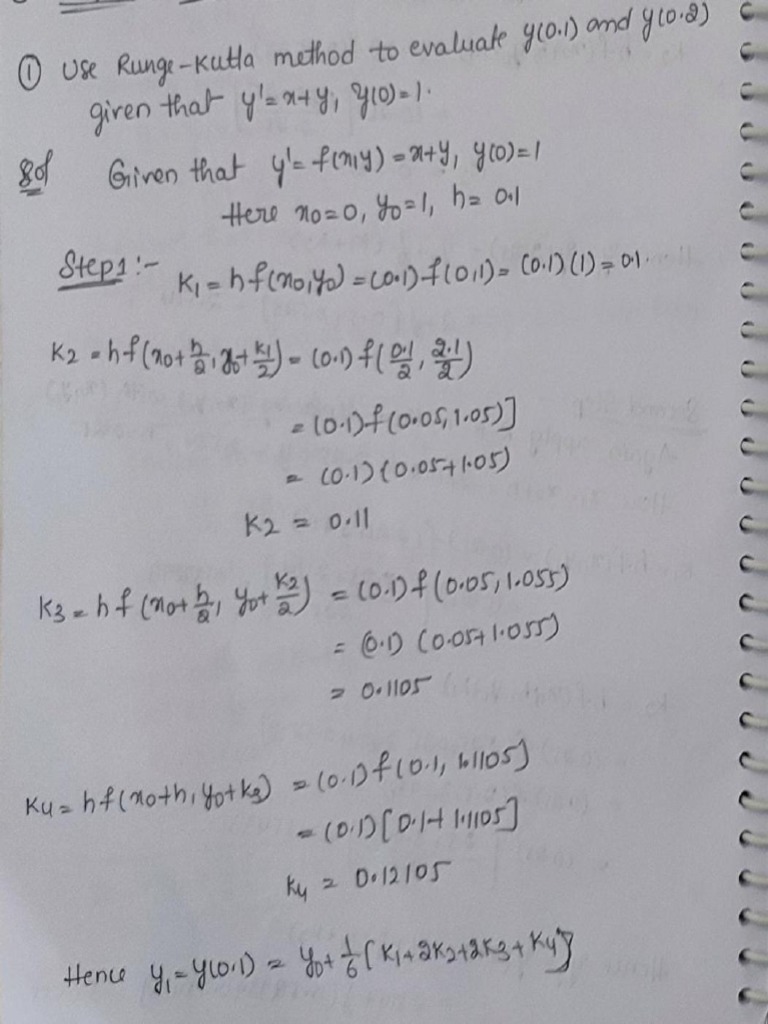 ① Use Runge-Kutta method to evaluate y(0.1) and y(0.2)
given that y' = x+y, y(0)=1.
Sol Given that y' = f(x,y) = x+y, y(0)=1
Here x0=0, y0=1, h=0.1
Step1:-
K1 = hf(x0,y0) = (0.1) f(0,1) = (0.1)(1) = 0.1.
K2 = hf(x0+h/2, y0+K1/2) = (0.1) f(0.1/2, 2.1/2)
= (0.1) f(0.05, 1.05)]
= (0.1) (0.05+1.05)
K2 = 0.11
K3 = hf(x0+h/2, y0+K2/2) = (0.1) f(0.05, 1.055)
= (0.1) (0.05+1.055)
= 0.1105
K4 = hf(x0+h, y0+K3) = (0.1) f(0.1, 1.1105)
= (0.1) [0.1+1.1105]
K4 = 0.12105
Hence y1 = y(0.1) = y0+1/6 [K1+2K2+2K3+K4]